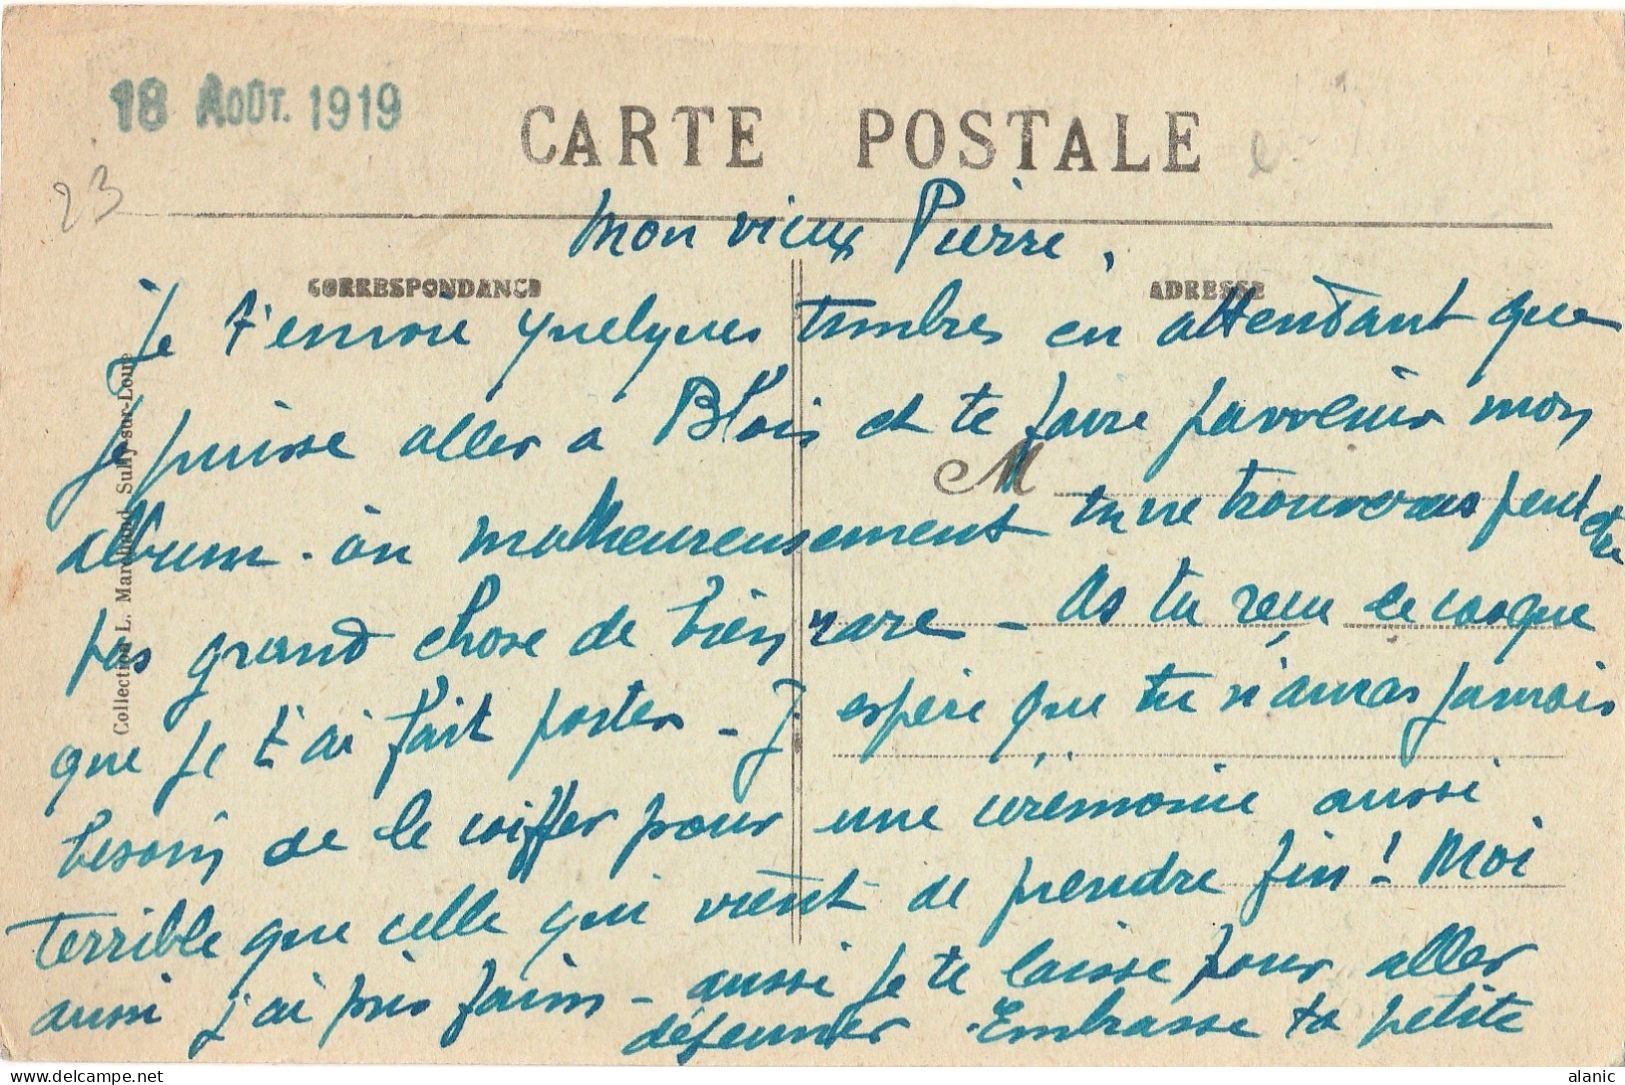 18 AOÛT. 1919
CARTE POSTALE
23
mon vieux Pierre,
CORRESPONDANCE
ADRESSE
Je t'envoie quelques timbres en attendant que
je puisse aller a Blois et te faire parvenir mon
M
album. où malheureusement tu ne trouveras peut etre
pas grand chose de bien rare - As tu reçu le casque
que je t'ai fait porter - J'espère que tu n'auras jamais
besoin de le coiffer pour une cérémonie aussi
terrible que celle qui vient de prendre fin! Moi
aussi j'ai pris faim - aussi je te laisse pour aller
déjeuner. Embrasse ta petite
Collection L. Marchand Sully-sur-Loire
delcampe.net
alanic